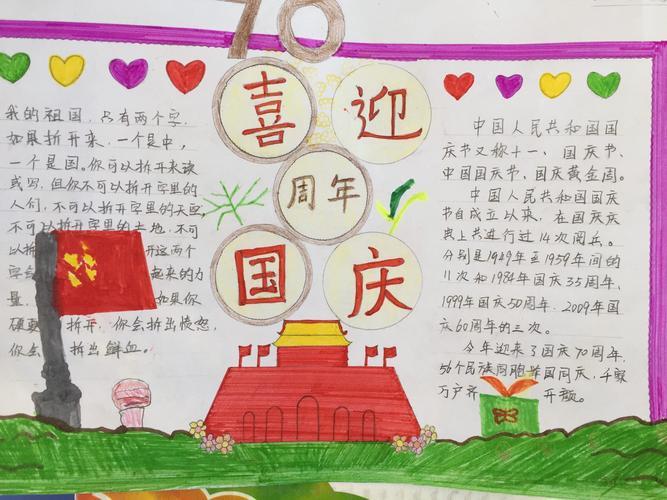 70
喜迎
周年
国庆
我的祖国，只有两个字，
如果拆开来，一个是中，
一个是国。你可以拆开来读
或写，但你不可以拆开字里的
人们，不可以拆开字里的天空，
不可以拆开字里的土地，不可
以拆 开这两个
字会 起来的力
量。 如果你
硬要 拆开，你会拆出愤怒，
你会 拆出鲜血。
中国人民共和国国
庆节又称十一、国庆节、
中国国庆节、国庆黄金周。
中国人民共和国国庆
节自成立以来，在国庆庆
典上共进行过14次阅兵。
分别是1949年至1959年间的
11次和1984年国庆35周年、
1999年国庆50周年、2009年国
庆60周年的三次。
今年迎来了国庆70周年，
56个民族同胞举国同庆，千家
万户齐 开颜。